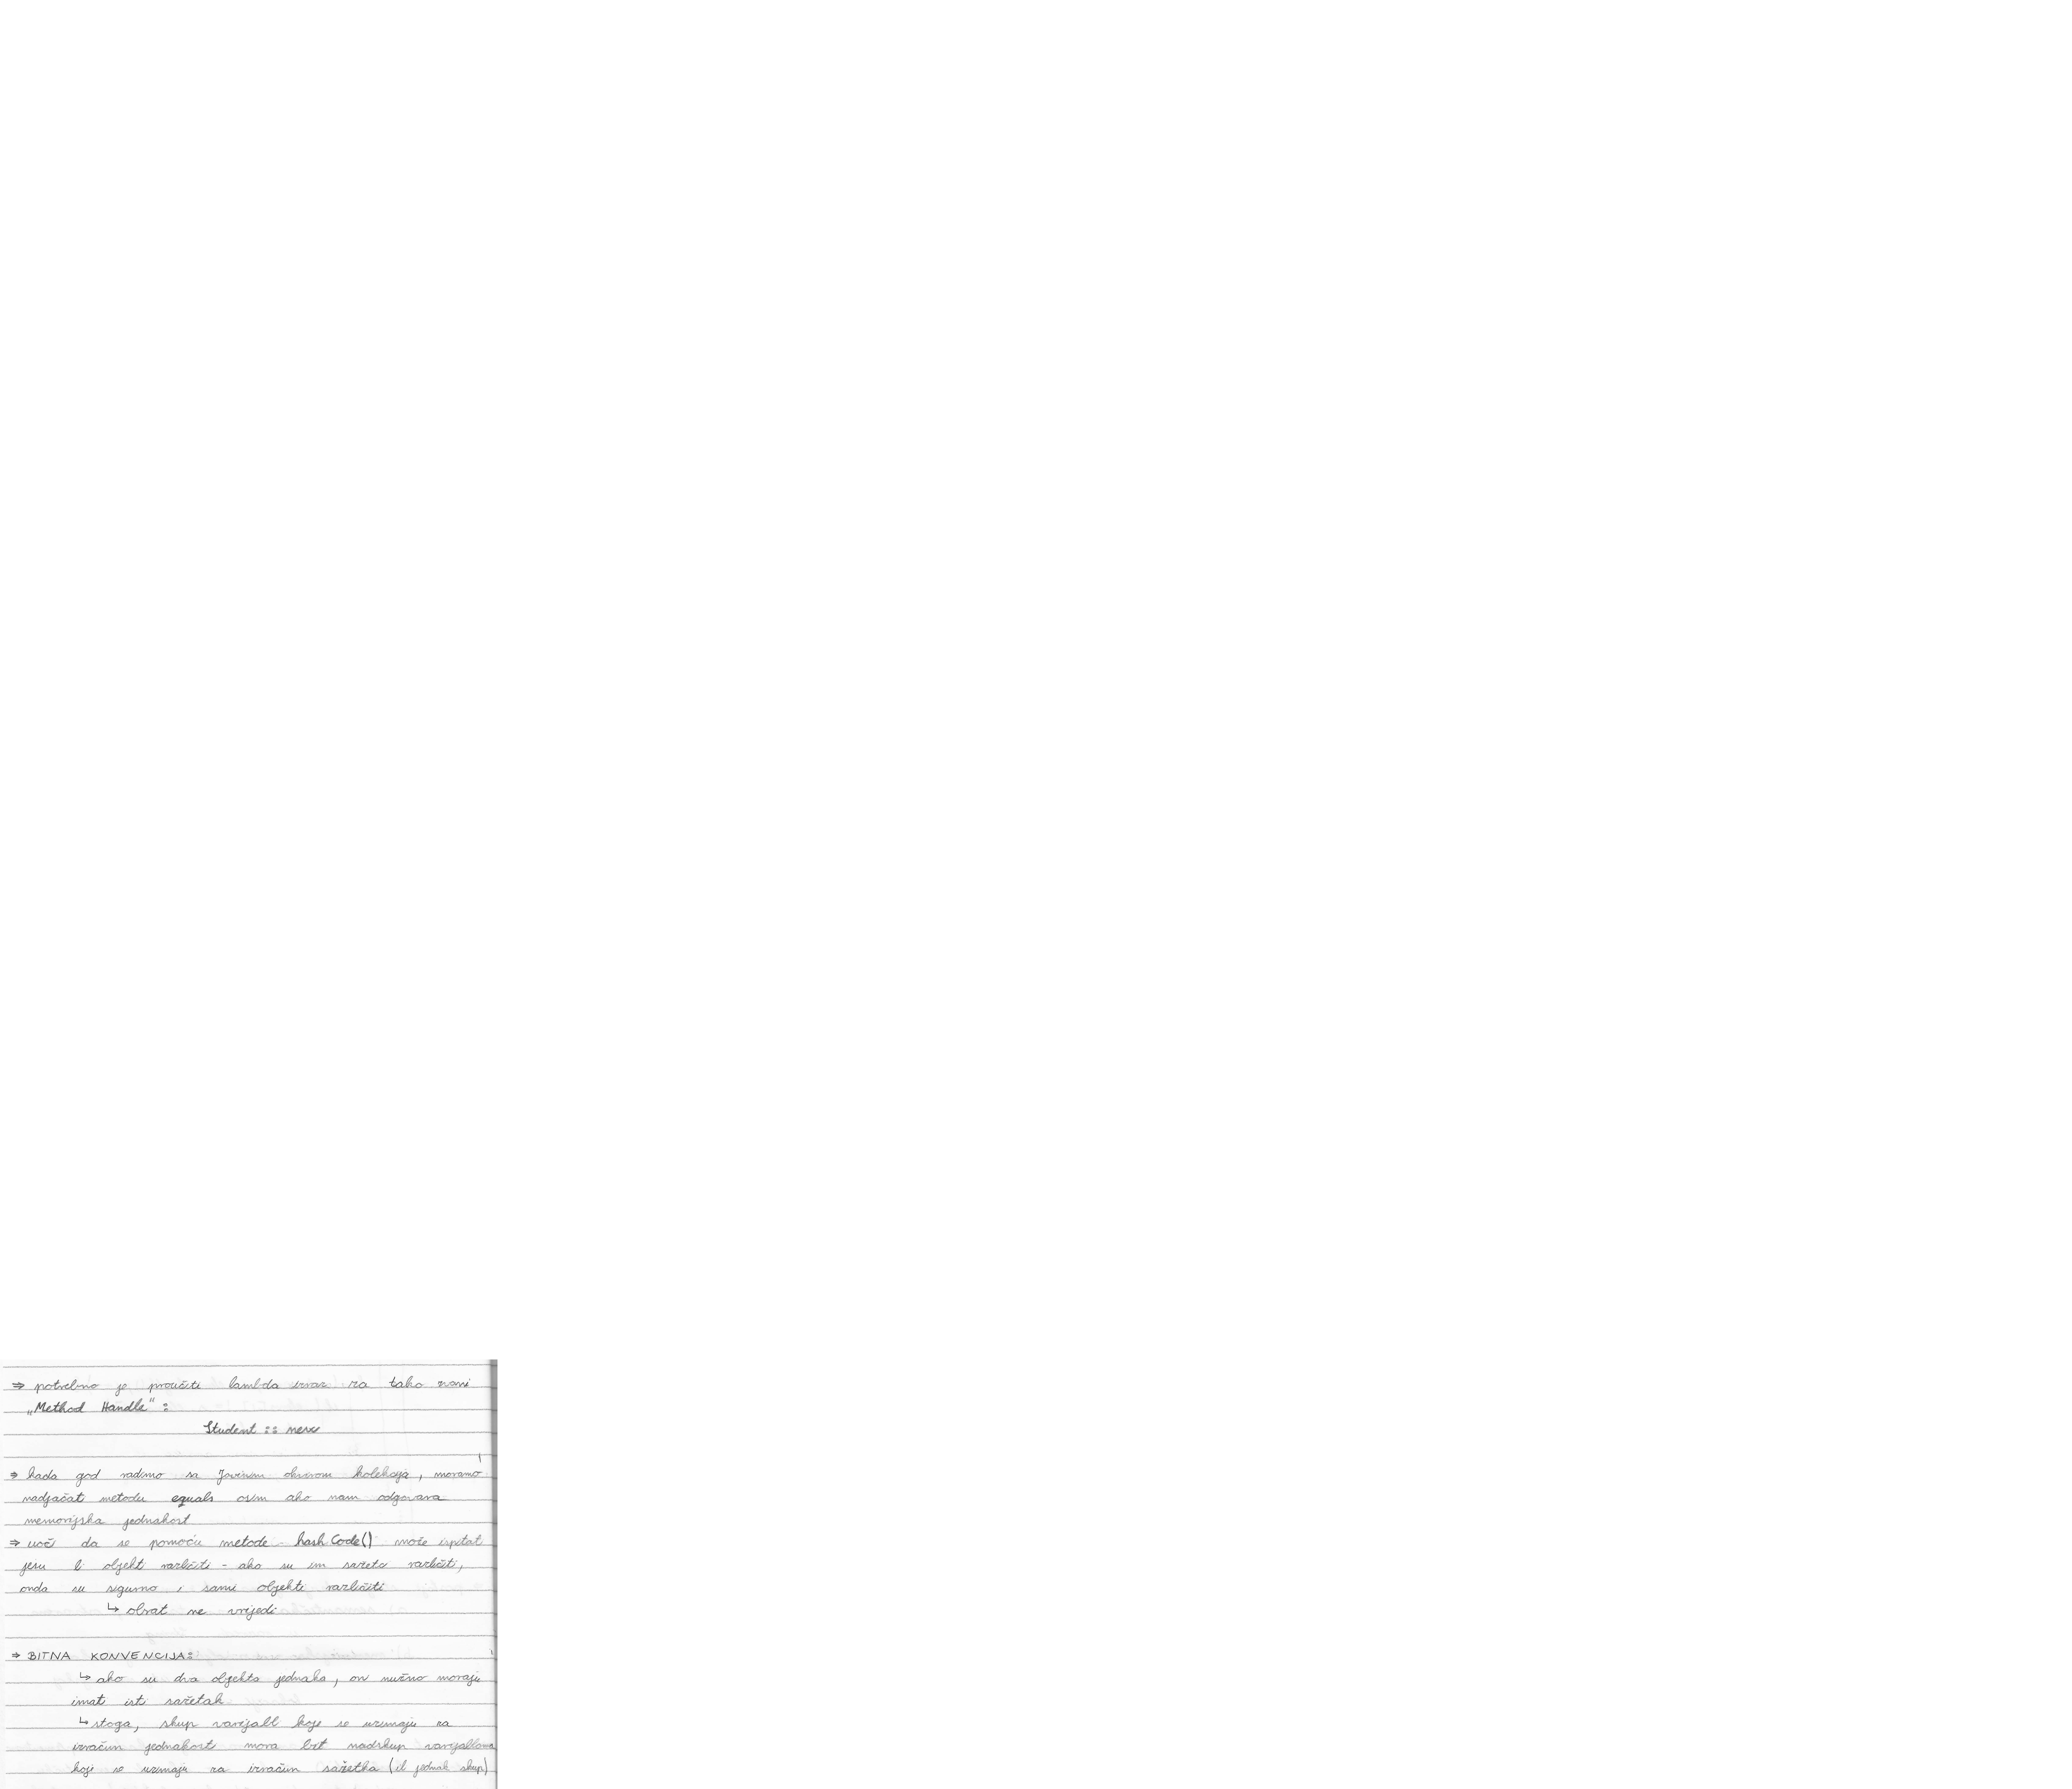 ⇒ potrebno je proučiti lambda izraz za tako zvani
„Method Handle“:
Student :: new
⇒ kada god radimo sa Javinim okvirom kolekcija, moramo
nadjačati metodu equals osim ako nam odgovara
memorijska jednakost
⇒ uoči da se pomoću metode hashCode() može ispitati
jesu li objekti različiti - ako su im sažetci različiti,
onda su sigurno i sami objekti različiti
↳ obrat ne vrijedi
⇒ BITNA KONVENCIJA:
↳ ako su dva objekta jednaka, oni nužno moraju
imati isti sažetak
↳ stoga, skup varijabli koje se uzimaju za
izračun jednakosti mora biti nadskup varijablama
koji se uzimaju za izračun sažetka (ili jednak skup)